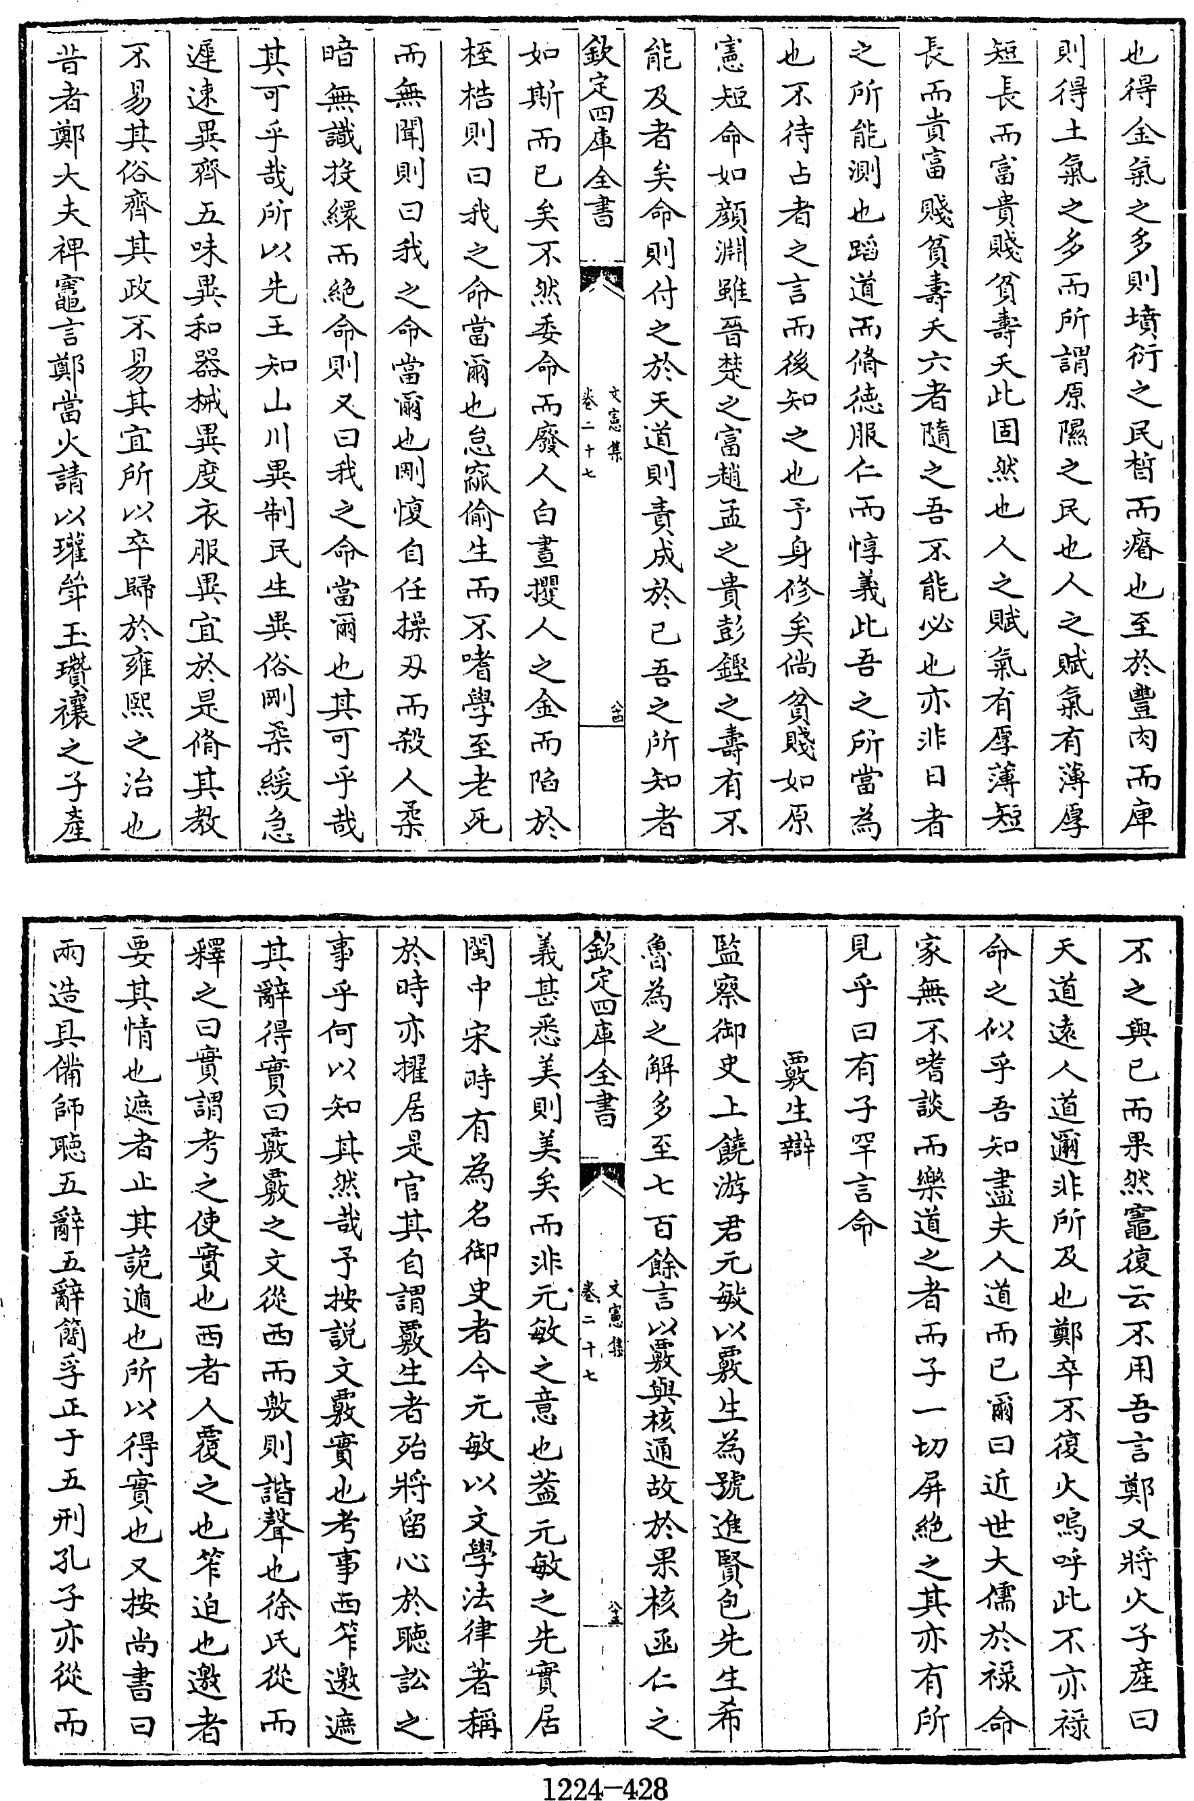 也得金氣之多則墳衍之民晳而瘠也至於豐肉而庳
則得土氣之多而所謂原隰之民也人之賦氣有薄厚
短長而富貴賤貧壽夭此固然也人之賦氣有厚薄短
長而貴富賤貧壽夭六者隨之吾不能必也亦非日者
之所能測也蹈道而脩徳服仁而惇義此吾之所當為
也不待占者之言而後知之也予身修矣倘貧賤如原
憲短命如顔淵雖晉楚之富趙孟之貴彭鏗之壽有不
能及者矣命則付之於天道則責成於己吾之所知者
欽定四庫全書
文憲集
卷二十七
八十四
如斯而已矣不然委命而廢人白晝攫人之金而陷於
桎梏則曰我之命當爾也怠窳偷生而不嗜學至老死
而無聞則曰我之命當爾也剛愎自任操刃而殺人柔
暗無識投繯而絶命則又曰我之命當爾也其可乎哉
其可乎哉所以先王知山川異制民生異俗剛柔緩急
遲速異齊五味異和器械異度衣服異宜於是脩其教
不易其俗齊其政不易其宜所以卒歸於雍熙之治也
昔者鄭大夫裨竈言鄭當火請以瓘斝玉瓚禳之子產
不之與已而果然竈復云不用吾言鄭又將火子產曰
天道遠人道邇非所及也鄭卒不復火嗚呼此不亦祿
命之似乎吾知盡夫人道而已爾曰近世大儒於祿命
家無不嗜談而樂道之者而子一切屏絶之其亦有所
見乎曰有子罕言命
覈生辯
監察御史上饒游君元敏以覈生為號進賢包先生希
魯為之解多至七百餘言以覈與核通故於果核函仁之
欽定四庫全書
文憲集
卷二十七
八十五
義甚悉美則美矣而非元敏之意也葢元敏之先實居
閩中宋時有為名御史者今元敏以文學法律著稱
於時亦擢居是官其自謂覈生者殆將留心於聽訟之
事乎何以知其然哉予按説文覈實也考事襾笮邀遮
其辭得實曰覈覈之文從襾而敫則諧聲也徐氏從而
釋之曰實謂考之使實也襾者人覆之也笮迫也邀者
要其情也遮者止其詭遁也所以得實也又按尚書曰
兩造具備師聽五辭五辭簡孚正于五刑孔子亦從而
1224-428